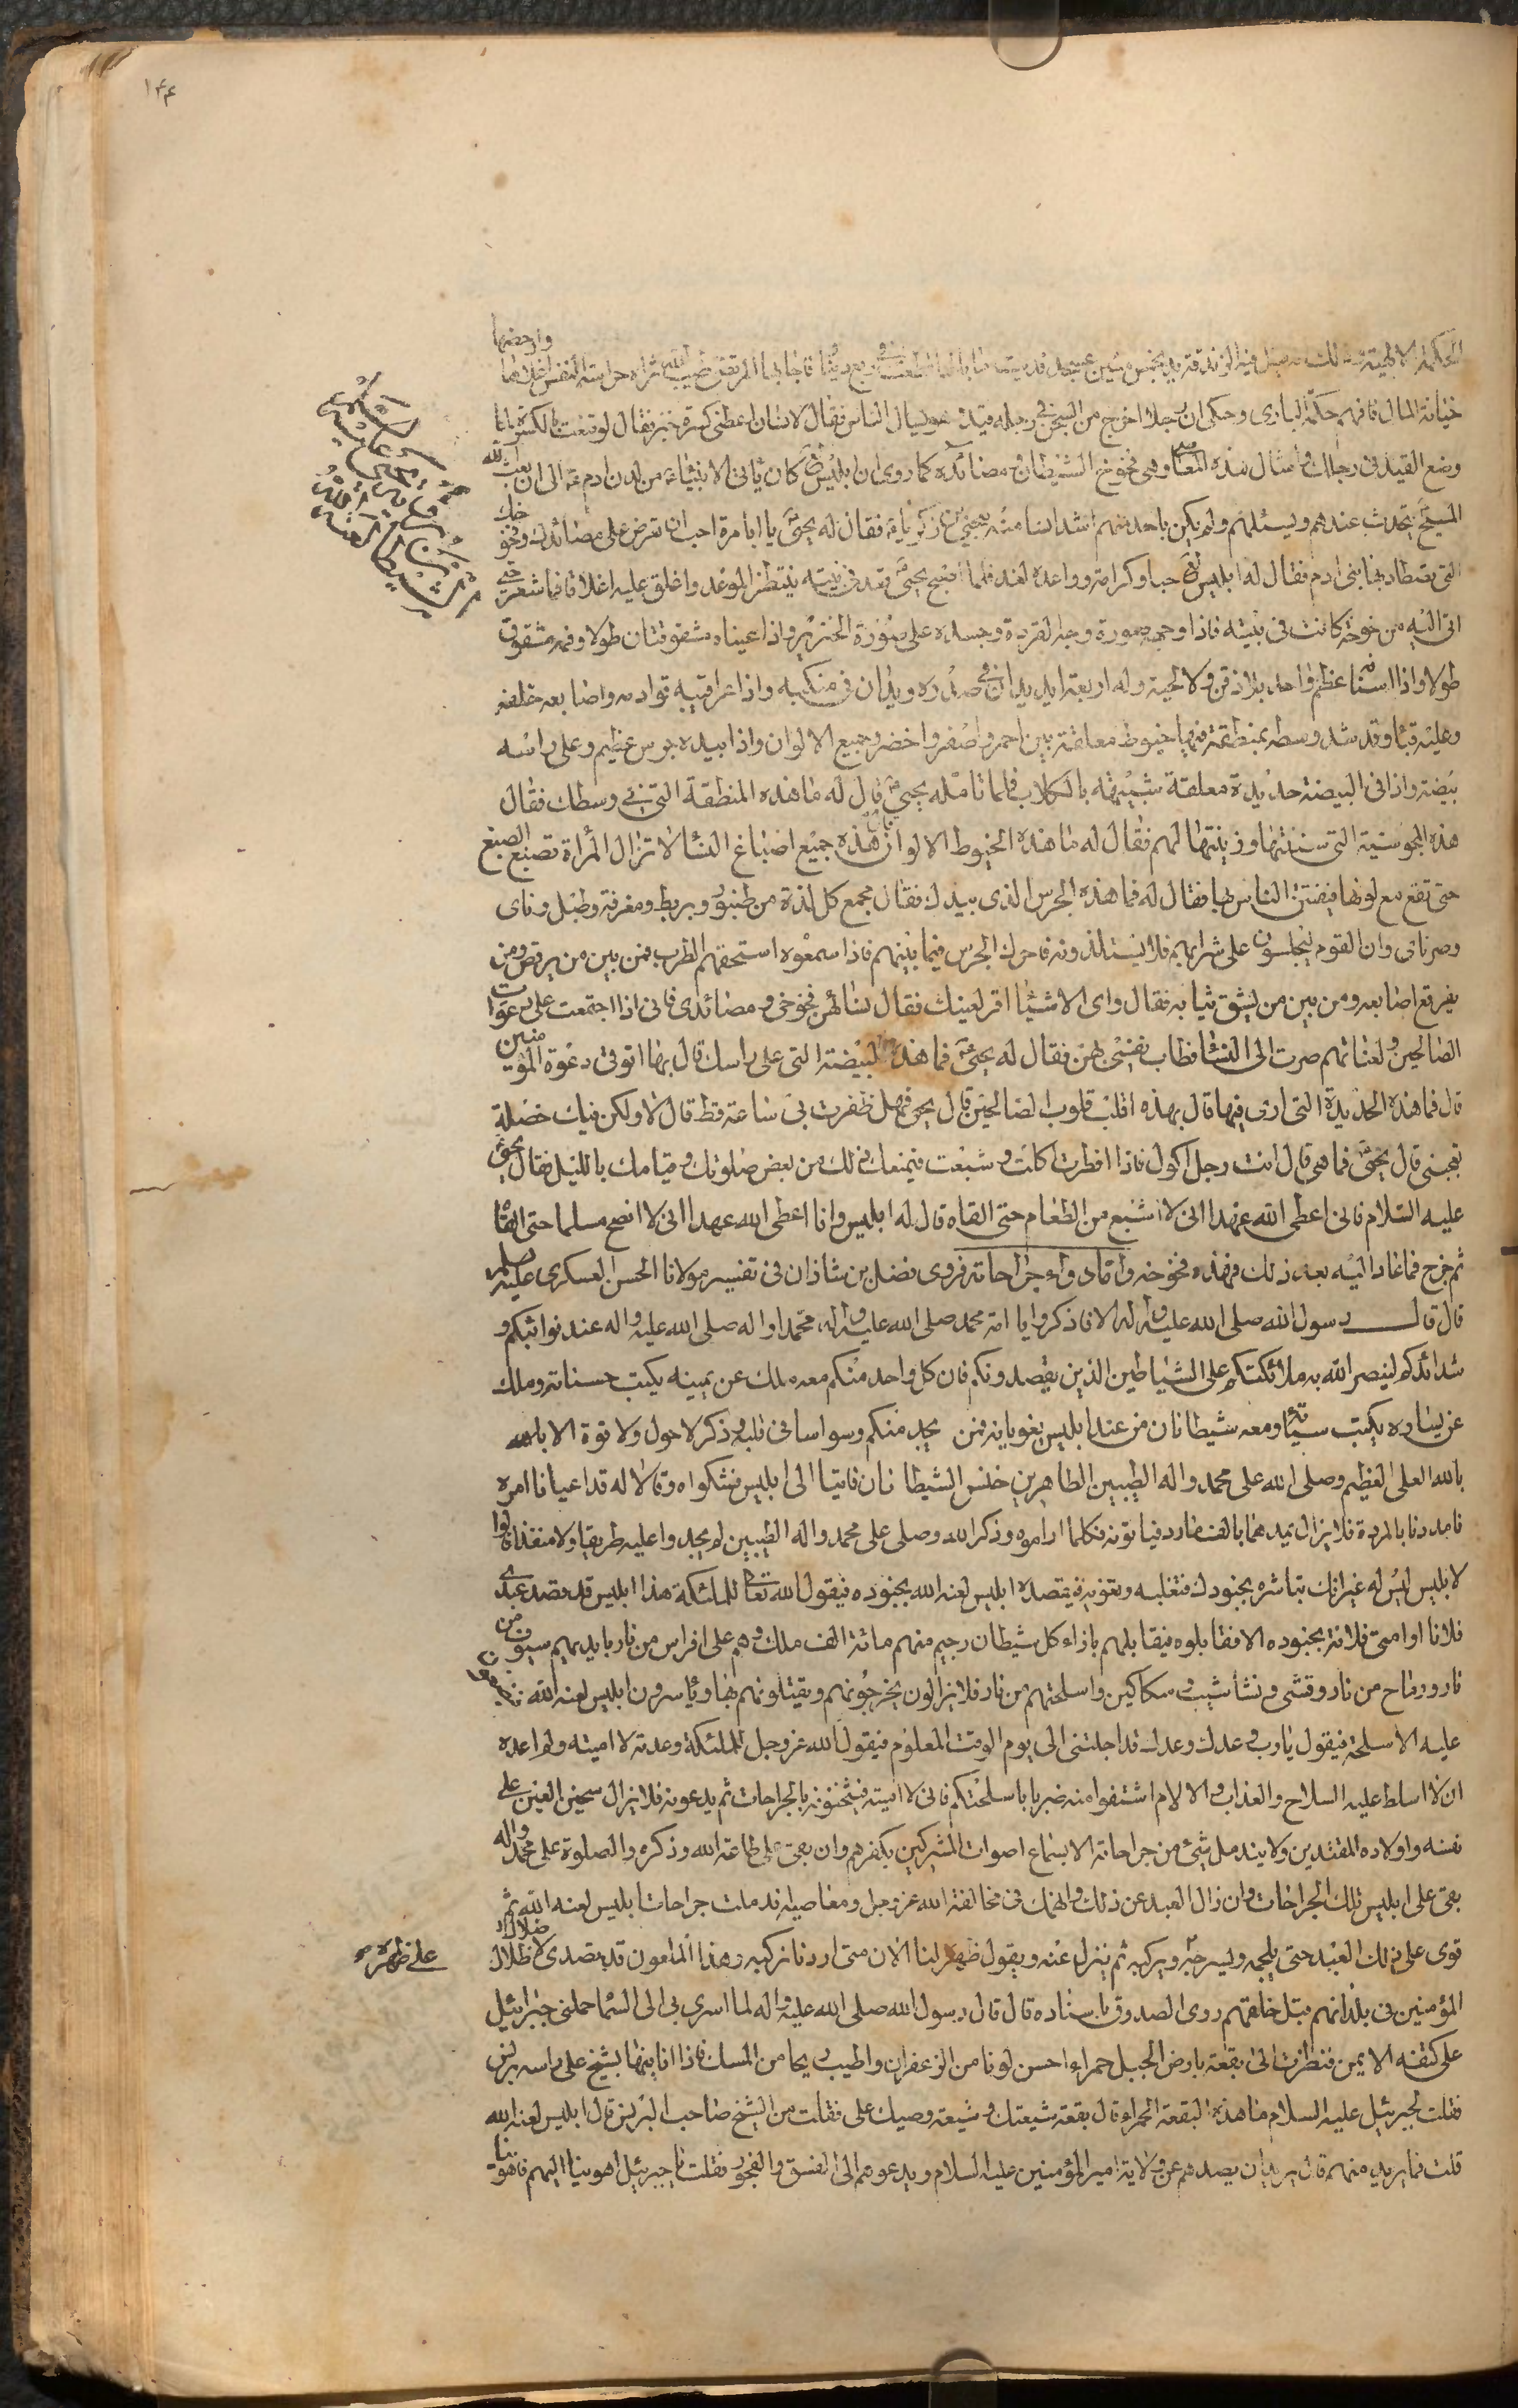 ١٤٤
الحكمة الالهية قيل فيه الزندقة يد بخمس مئين عسجد فديت ما بالها قطعت في ربع دينار فاجابه المرتضى طيب الله ثراه حراسة النفس اغلاها وارخصها
خيانة المال فافهم حكمة الباري وحكى ان رجلا اخرج من السجن في رجله قيد وهو يسال الناس فقال لانسان اعطني كسرة خبز فقال لو قنعت بالكسرة لما
وضع القيد في رجلك وامثال هذه المعاصي وهي فخوخ الشيطان ومصائده كما روى ان ابليس كان ياتي الانبياء من لدن ادم الى ان بعث الله
المسيح يتحدث عندهم ويسئلهم ولم يكن باحد منهم اشد انسا منه بيحيى بن زكريا فقال له يحيى يا ابا مرة احب ان تعرض على مصائدك وفخوخك
التي تصطاد بها بني ادم فقال له ابليس حبا وكرامة وواعده لغد فلما اصبح يحيى قعد في بيته ينتظر الموعد واغلق عليه اغلاقا فما شعر حتى
اتى اليه من خوخة كانت في بيته فاذا وجهه صورة وجه القردة وجسده على صورة الخنزير واذا عيناه مشقوقتان طولا وفمه مشقوق
طولا واذا اسنانه عظم واحد بلا ذقن ولا لحية وله اربعة ايد يدان في صدره ويدان في منكبه واذا عراقيبه قوادمه واصابعه خلفه
وعليه قباء وقد شد وسطه بمنطقة فيها خيوط معلقة بين احمر واصفر واخضر وجميع الالوان واذا بيده جرس عظيم وعلى راسه
بيضة واذا في البيضة حديدة معلقة شبيهة بالكلاب فلما تامله يحيى قال له ما هذه المنطقة التي في وسطك فقال
هذه المجوسية التي سننتها وزينتها لهم فقال له ما هذه الخيوط الالوان قال هذه جميع اصباغ النساء لا تزال المرأة تصبغ الصبغ
حتى تقع مع لونها فيفتتن الناس بها فقال له فما هذه الجرس الذي بيدك فقال مجمع كل لذة من طنبور وبربط ومعزفة وطبل وناي
وصرناي وان القوم ليجلسون على شرابهم فلا يستلذونه فاحرك الجرس فيما بينهم فاذا سمعوه استخفهم الطرب فمن بين من يرقص ومن
يفرقع اصابعه ومن بين من يشق ثيابه فقال واي الاشياء اقر لعينك فقال النساء هن فخوخي ومصائدي فاني اذا اجتمعت على دعوات
الصالحين ولعناتهم صرت الى النساء فطاب نفسي بهن فقال له يحيى فما هذه البيضة التي على راسك قال بها اتوقى دعوة المؤمنين
قال فما هذه الحديدة التي ارى فيها قال بهذه اقلب قلوب الصالحين قال يحيى فهل ظفرت بي ساعة قط قال لا ولكن فيك خصلة
تعجبني قال يحيى فما هي قال انت رجل اكول فاذا افطرت اكلت وشبعت فيمنعك ذلك من بعض صلوتك وقيامك بالليل فقال يحيى
عليه السلام فاني اعطى الله عهدا اني لا اشبع من الطعام حتى القاه قال له ابليس وانا اعطى الله عهدا اني لا انصح مسلما حتى القاه
ثم خرج فما عاد اليه بعد ذلك فهذه فخوخه واما دواء جراحاته فروى فضل بن شاذان في تفسير مولانا الحسن العسكري عليه السلام
قال قال رسول الله صلى الله عليه واله الا فاذكروا يا امة محمد صلى الله عليه واله محمدا واله صلى الله عليه واله عند نوائبكم و
شدائدكم لينصر الله به ملائكتكم على الشياطين الذين يقصدونكم فان كل واحد منكم معه ملك عن يمينه يكتب حسناته وملك
عن يساره يكتب سيئاته ومعه شيطانان من عند ابليس يغويانه فمن يجد منكم وسواسا في قلبه وذكر لا حول ولا قوة الا بالله
بالله العلي العظيم وصلى الله على محمد واله الطيبين الطاهرين خنس الشيطانان فاتيا الى ابليس فشكواه وقالا له قد اعيانا امره
فامددنا بالمردة فلا يزال يمدهما بالف مارد فياتونه فكلما راموه وذكر الله وصلى على محمد واله الطيبين لم يجدوا عليه طريقا ولا منفذا قالوا
لابليس ليس له غيرك تباشره بجنودك فتغلبه وتغويه فيقصده ابليس لعنه الله بجنوده فيقول الله تعالى للملئكة هذا ابليس قد قصد عبدي
فلانا او امتي فلانة بجنوده الا فقابلوه فيقابلهم بازاء كل شيطان رجيم منهم مائة الف ملك وهم على افراس من نار بايديهم سيوف من
نار ورماح من نار وقسي ونشاشيب وسكاكين واسلحتهم من نار فلا يزالون يخرجونهم ويقتلونهم بها وياسرون ابليس لعنه الله فيضعون
عليه الاسلحة فيقول يا رب وعدك وعدك قد اجلتني الى يوم الوقت المعلوم فيقول الله عز وجل للملئكة وعدته لا اميته ولم اعده
ان لا اسلط عليه السلاح والعذاب والالام اشتفوا منه ضربا باسلحتكم فاني لا اميته فيثخنونه بالجراحات ثم يدعونه فلا يزال سخين العين على
نفسه واولاده المقتدين ولا يندمل شيء من جراحاته الا بسماع اصوات المشركين بكفرهم وان بقي على طاعة الله وذكره والصلوة على محمد واله
بقي على ابليس تلك الجراحات وان زال العبد عن ذلك وانهمك في مخالفة الله عز وجل ومعاصيه اندملت جراحات ابليس لعنه الله ثم
قوى على ذلك العبد حتى يلجمه ويسرجه ويركبه ثم ينزل عنه ويقول ظهره لنا الان متى اردنا نركبه وهذا الملعون قد تصدى لاضلال
على ظهره
المؤمنين في بلدانهم قبل خلقتهم روى الصدوق باسناده قال قال رسول الله صلى الله عليه واله لما اسري بي الى السماء حملني جبرائيل
على كتفه الايمن فنظرت الى بقعة بارض الجبل حمراء احسن لونا من الزعفران واطيب ريحا من المسك فاذا انا فيها بشيخ على راسه برنس
فقلت لجبرئيل عليه السلام ما هذه البقعة الحمراء قال بقعة شيعتك وشيعة وصيك علي فقلت من الشيخ صاحب البرنس قال ابليس لعنه الله
قلت فما يريد منهم قال يريد ان يصدهم عن ولاية امير المؤمنين عليه السلام ويدعوهم الى الفسق والفجور فقلت يا جبرئيل اهو بنا اليهم فاهوى بنا